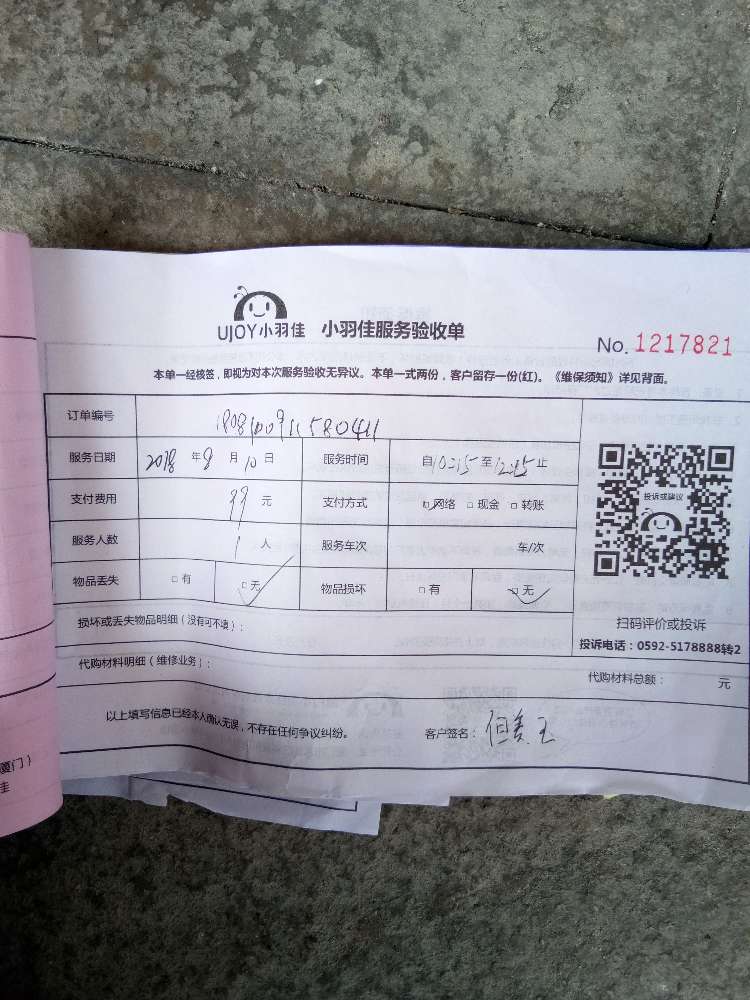 UJOY小羽佳 小羽佳服务验收单
No. 1217821
本单一经核签，即视为对本次服务验收无异议。本单一式两份，客户留存一份(红)。《维保须知》详见背面。
订单编号 180810091158041
服务日期 2018 年 8 月 10 日 服务时间 自 10:15 至 12:15 止
支付费用 99 元 支付方式 ☑网络 □现金 □转账
投诉或建议
服务人数 1 人 服务车次 车/次
物品丢失 □有 ☑无 物品损坏 □有 ☑无
扫码评价或投诉
损坏或丢失物品明细（没有可不填）：
投诉电话：0592-5178888转2
代购材料明细（维修业务）：
代购材料总额： 元
以上填写信息已经本人确认无误，不存在任何争议纠纷。 客户签名：
厦门）
佳